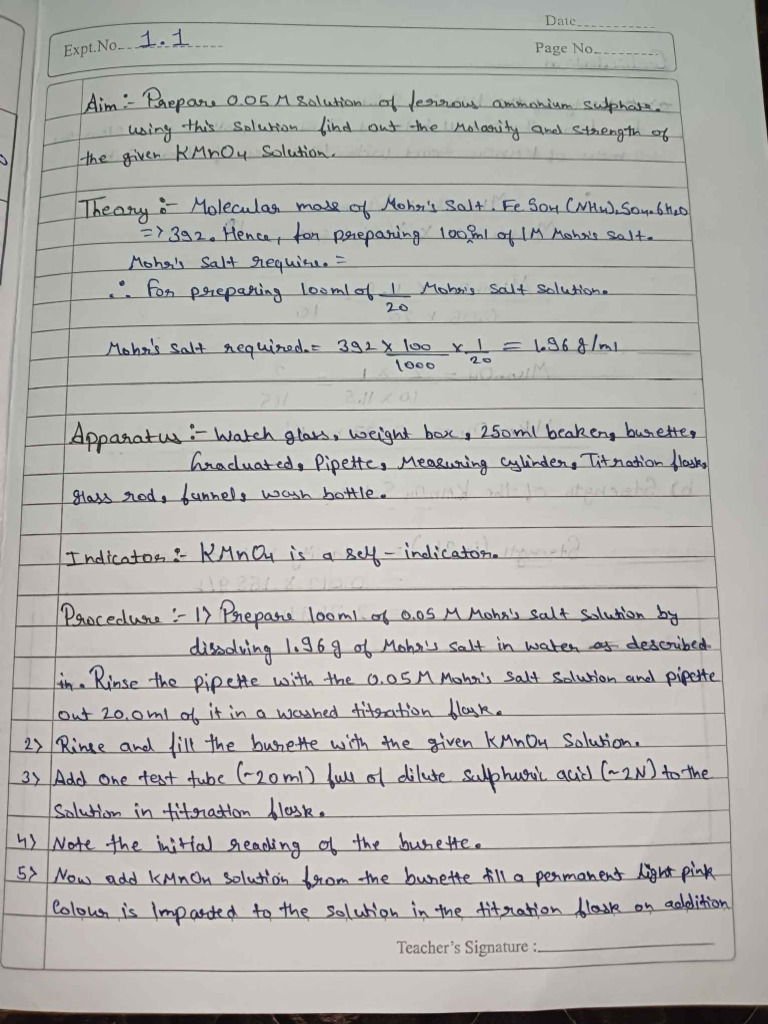 Date
Expt.No. 1.1
Page No.
Aim :- Prepare 0.05 M Solution of ferrous ammonium sulphate.
using this solution find out the Molarity and strength of
the given KMnO4 Solution.
Theory :- Molecular mass of Mohr's Salt. Fe.SO4 (NH4)2SO4.6H2O
=> 392. Hence, for preparing 1000ml of 1M Mohr's salt.
Mohr's Salt require. =
∴ for preparing 100ml of 1/20 Mohr's salt solution.
Mohr's salt required. = 392 x 100/1000 x 1/20 = 1.96 g/ml
Apparatus :- Watch glass, weight box, 250ml beaker, burette,
Graduated, Pipette, Measuring cylinder, Titration flask,
glass rod, funnel, wash bottle.
Indicator :- KMnO4 is a self-indicator.
Procedure :- 1> Prepare 100ml of 0.05 M Mohr's salt solution by
dissolving 1.96 g of Mohr's salt in water as described
in. Rinse the pipette with the 0.05M Mohr's Salt Solution and pipette
out 20.0ml of it in a washed titration flask.
2> Rinse and fill the burette with the given KMnO4 Solution.
3> Add one test tube (~20ml) full of dilute sulphuric acid (~2N) to the
Solution in titration flask.
4> Note the initial reading of the burette.
5> Now add KMnO4 solution from the burette till a permanent light pink
Colour is Imparted to the solution in the titration flask on addition
Teacher's Signature :